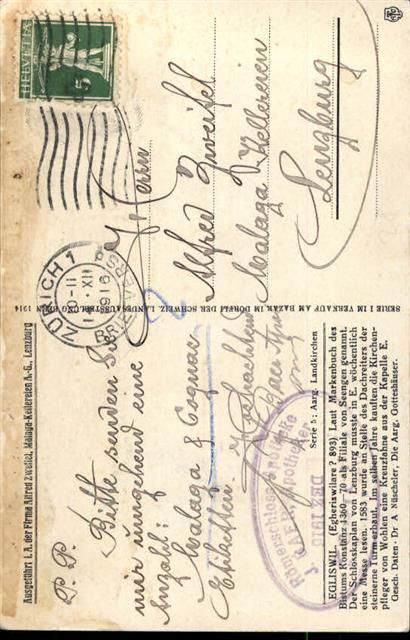 Ausgeführt i. A. der Firma Alfred Zweifel, Malaga-Kellereien A.-G., Lenzburg
P. P.
Bitte senden Sie
mir umgehend eine
Anzahl:
Malaga & Cognac
Etiketten.
Hochachtend
Römerschloss-Apotheke
DEZ 1916
Serie 5: Aarg. Landkirchen
EGLISWIL. (Egheriswilare? 893) Laut Markenbuch des
Bistums Konstanz 1360-70 als Filiale von Seengen genannt.
Der Schlosskaplan von Lenzburg musste in E. wöchentlich
eine Messe lesen. 1583 wurde an Stelle des Dachreiters der
steinerne Turm erbaut. Im selben Jahre kauften die Kirchen-
pfleger von Wohlen eine Kreuzfahne aus der Kapelle E.
Gesch. Daten: Dr A Nüscheler, Die Aarg. Gotteshäuser.
SERIE I IM VERKAUF AM BAZAR IM DÖRFLI DER SCHWEIZ. LANDESAUSSTELLUNG BERN 1914
HELVETIA
5
ZÜRICH 1
XII
16
BRIEFVERS
Herrn
Alfred Zweifel
Malaga Kellereien
Lenzburg